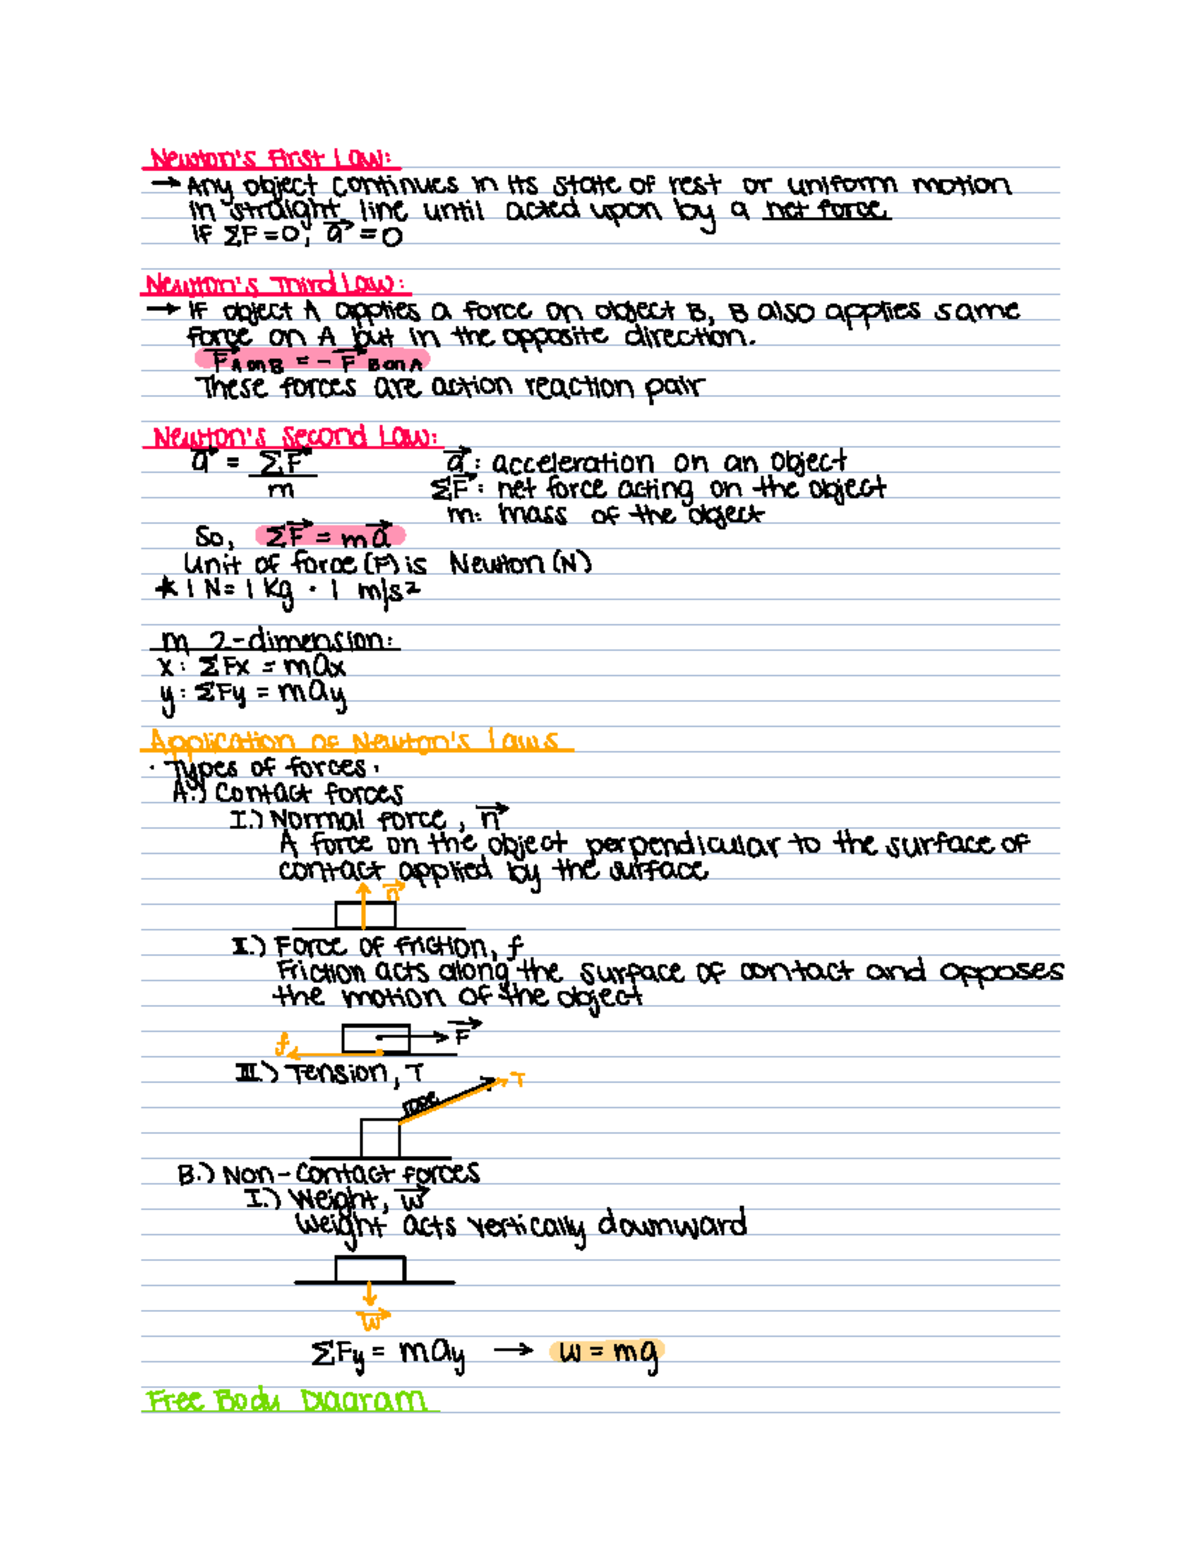 Newton's First Law:
→ Any object continues in its state of rest or uniform motion
in straight line until acted upon by a net force
If ΣF = 0, a⃗ = 0
Newton's Third Law:
→ If object A applies a force on object B, B also applies same
force on A but in the opposite direction.
F⃗ A on B = - F⃗ B on A
These forces are action reaction pair
Newton's Second Law:
a⃗ = ΣF⃗ / m a⃗: acceleration on an object
ΣF⃗: net force acting on the object
m: mass of the object
So, ΣF⃗ = ma⃗
Unit of force (F) is Newton (N)
* 1 N = 1 Kg · 1 m/s²
m 2-dimension:
x: ΣFx = max
y: ΣFy = may
Application of Newton's Laws
· Types of forces.
A.) Contact forces
I.) Normal force, n⃗
A force on the object perpendicular to the surface of
contact applied by the surface
n⃗
II.) Force of friction, f
Friction acts along the surface of contact and opposes
the motion of the object
f F⃗
III.) Tension, T
rope T
B.) Non-Contact forces
I.) Weight, w⃗
Weight acts vertically downward
w⃗
ΣFy = may → w = mg
Free Body Diagram